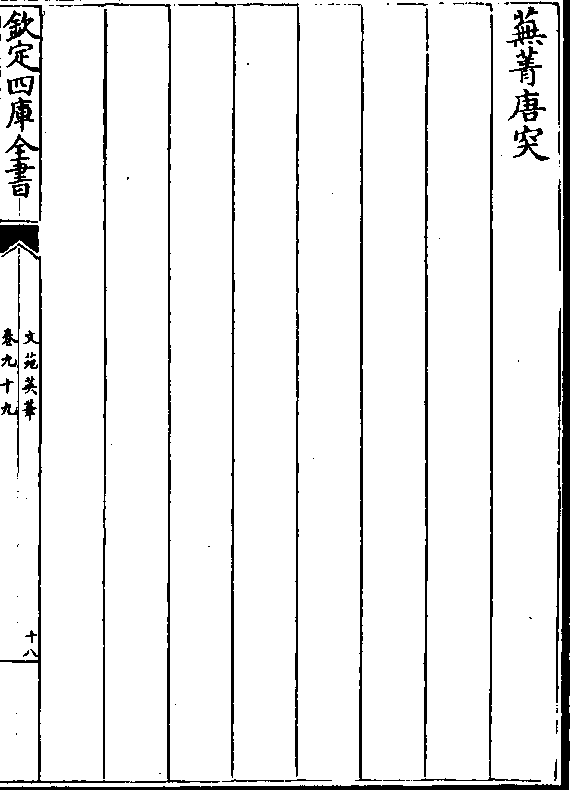 蕪菁唐突
欽定四庫全書
文苑英華
卷九十九
十八